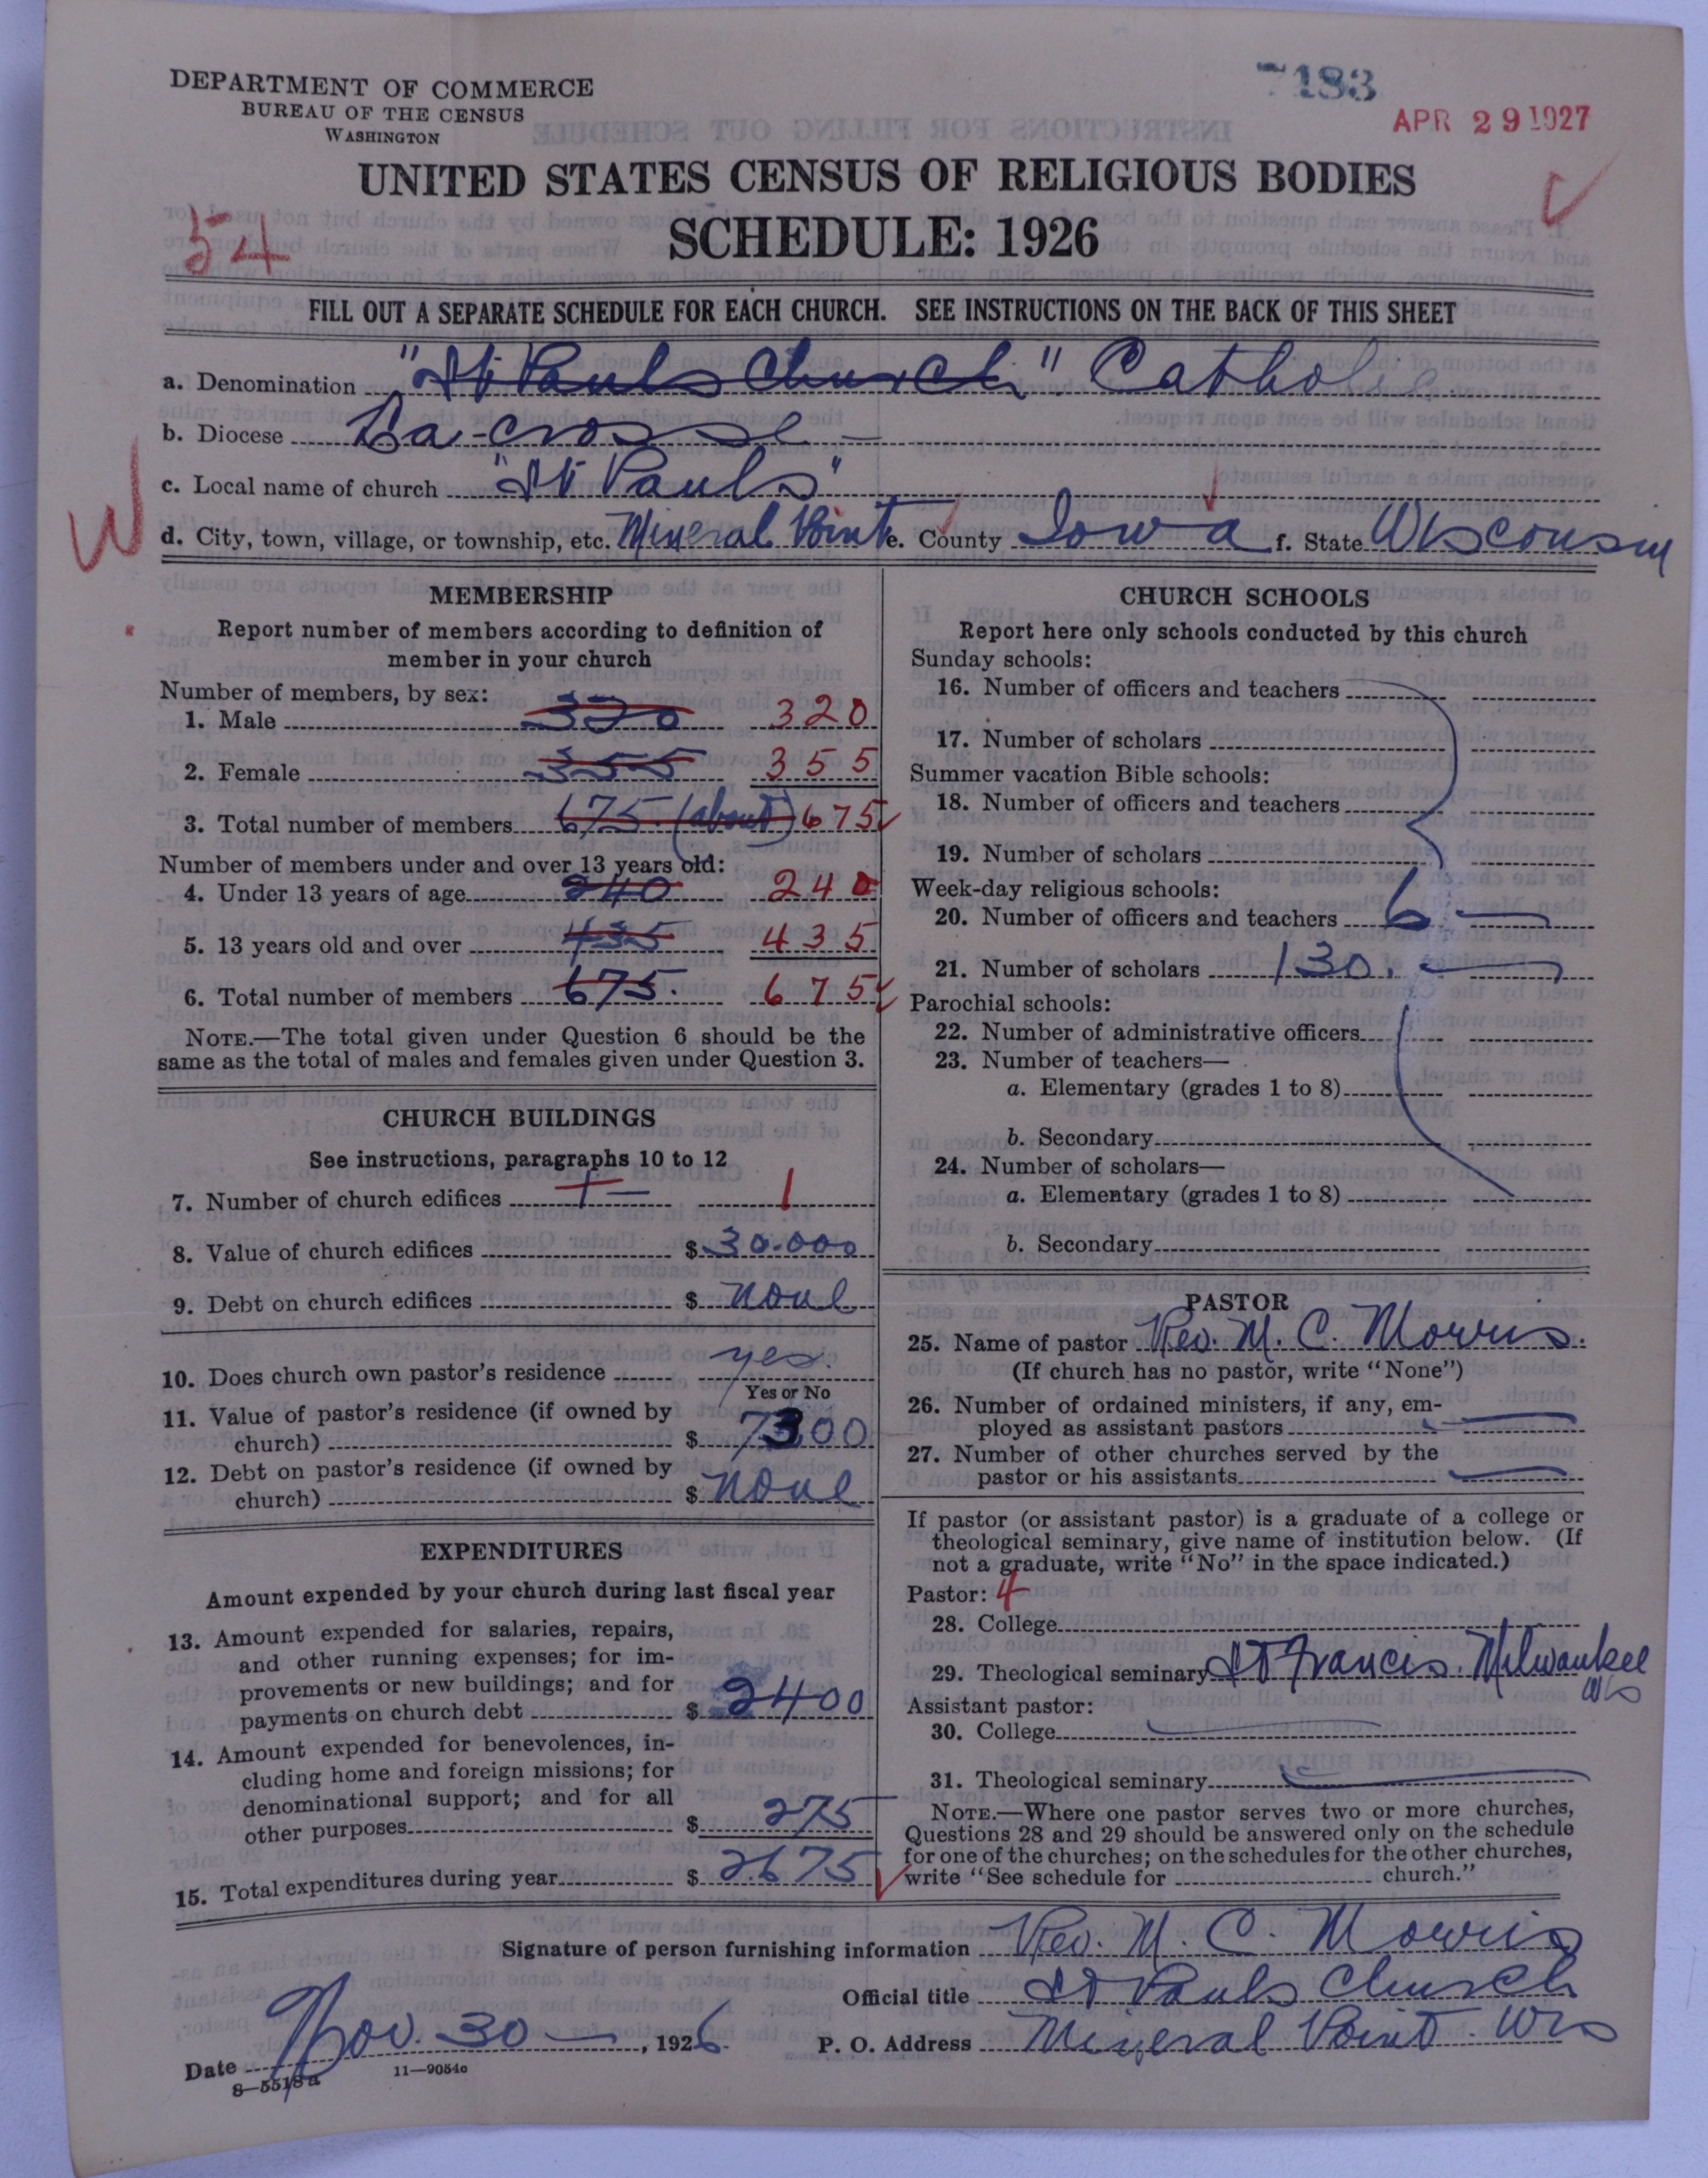 DEPARTMENT OF COMMERCE
BUREAU OF THE CENSUS
WASHINGTON
7183
APR 29 1927
UNITED STATES CENSUS OF RELIGIOUS BODIES
SCHEDULE: 1926
54
FILL OUT A SEPARATE SCHEDULE FOR EACH CHURCH. SEE INSTRUCTIONS ON THE BACK OF THIS SHEET
a. Denomination "St Pauls Church" Catholic
b. Diocese La-crosse -
c. Local name of church "St Pauls"
W
d. City, town, village, or township, etc. Mineral Point e. County Iowa f. State Wisconsin
MEMBERSHIP
Report number of members according to definition of
member in your church
Number of members, by sex:
1. Male 320 320
2. Female 355 355
3. Total number of members 675. (about) 675
Number of members under and over 13 years old:
4. Under 13 years of age 240 240
5. 13 years old and over 435 435
6. Total number of members 675. 675
NOTE.—The total given under Question 6 should be the
same as the total of males and females given under Question 3.
CHURCH BUILDINGS
See instructions, paragraphs 10 to 12
7. Number of church edifices 1 — 1
8. Value of church edifices $ 30.000
9. Debt on church edifices $ none
10. Does church own pastor's residence yes.
Yes or No
11. Value of pastor's residence (if owned by
church) $ 7300
12. Debt on pastor's residence (if owned by
church) $ none
EXPENDITURES
Amount expended by your church during last fiscal year
13. Amount expended for salaries, repairs,
and other running expenses; for im-
provements or new buildings; and for
payments on church debt $ 2400
14. Amount expended for benevolences, in-
cluding home and foreign missions; for
denominational support; and for all
other purposes $ 275
15. Total expenditures during year $ 2675
CHURCH SCHOOLS
Report here only schools conducted by this church
Sunday schools:
16. Number of officers and teachers
17. Number of scholars
Summer vacation Bible schools:
18. Number of officers and teachers
19. Number of scholars
Week-day religious schools:
20. Number of officers and teachers 6 —
21. Number of scholars 130. —
Parochial schools:
22. Number of administrative officers
23. Number of teachers—
a. Elementary (grades 1 to 8)
b. Secondary
24. Number of scholars—
a. Elementary (grades 1 to 8)
b. Secondary
PASTOR
25. Name of pastor Rev. M. C. Morris.
(If church has no pastor, write "None")
26. Number of ordained ministers, if any, em-
ployed as assistant pastors
27. Number of other churches served by the
pastor or his assistants
If pastor (or assistant pastor) is a graduate of a college or
theological seminary, give name of institution below. (If
not a graduate, write "No" in the space indicated.)
Pastor: 4
28. College
29. Theological seminary St Francis. Milwaukee
Wis
Assistant pastor:
30. College
31. Theological seminary
NOTE.—Where one pastor serves two or more churches,
Questions 28 and 29 should be answered only on the schedule
for one of the churches; on the schedules for the other churches,
write "See schedule for church."
Signature of person furnishing information Rev. M. C. Morris
Official title St Pauls Church
Date Nov. 30 —, 1926. P. O. Address Mineral Point. Wis
8—5518a 11—9054c